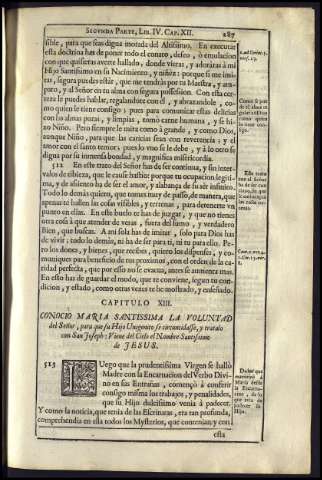 SEGUNDA PARTE, LIB. IV. CAP. XII. 287
sible, para que seas digna morada del Altissimo. En executar
esta doctrina has de poner todo el conato, deseo, y emulacion
con que quisieras averte hallado, donde vieras, y adoràras à mi
Hijo Santissimo en su Nacimiento, y niñez: porque si me imi-
tas, segura puedes estàr, que me tendràs por tu Maestra, y am-
paro, y al Señor en tu alma con segura possession. Con esta cer-
teza le puedes hablar, regalandote con el, y abrazandole, co-
mo quien le tiene consigo: pues para comunicar estas delicias
con las almas puras, y limpias, tomò carne humana, y se hi-
zo Niño. Pero siempre le mira como à grande, y como Dios,
aunque Niño, para que las caricias sean con reverencia: y el
amor con el santo temor; pues lo vno se le debe, y à lo otro se
digna por su inmensa bondad, y magnifica misericordia.
512 En este trato del Señor has de ser continua, y sin inter-
valos de tibieza, que le cause hastio: porque tu ocupacion legiti-
ma, y de assiento ha de ser el amor, y alabança de su sèr infinito.
Todo lo demàs quiero, que tomes muy de passo, de manera, que
apenas te hallen las cosas visibles, y terrenas, para detenerte vn
punto en ellas. En este buelo te has de juzgar, y que no tienes
otra cosa à que atender de veras, fuera del sumo, y verdadero
Bien, que buscas. A mi sola has de imitar, solo para Dios has
de vivir; todo lo demàs, ni ha de ser para ti, ni tu para ello. Pe-
ro los dones, y bienes, que recibes, quiero los dispenses, y co-
muniques para beneficio de tus proximos, con el orden de la ca-
ridad perfecta, que por esso no se evacua, antes se aumenta mas.
En esto has de guardar el modo, que te conviene, segun tu con-
dicion, y estado, como otras vezes te he mostrado, y enseñado.
CAPITULO XIII.
CONOCIO MARIA SANTISSIMA LA VOLUNTAD
del Señor, para que su Hijo Unigenito se circuncidasse, y tratalo
con San Joseph: Viene del Cielo el Nombre Santissimo
de JESUS.
513 LUego que la prudentissima Virgen se hallò
Madre con la Encarnacion del Verbo Divi-
no en sus Entrañas, començò à conferir
consigo misma los trabajos, y penalidades,
que su Hijo dulcissimo venia à padecer.
Y como la noticia, que tenia de las Escrituras, era tan profunda,
comprehendia en ella todos los Mysterios, que contenian, y con
esta